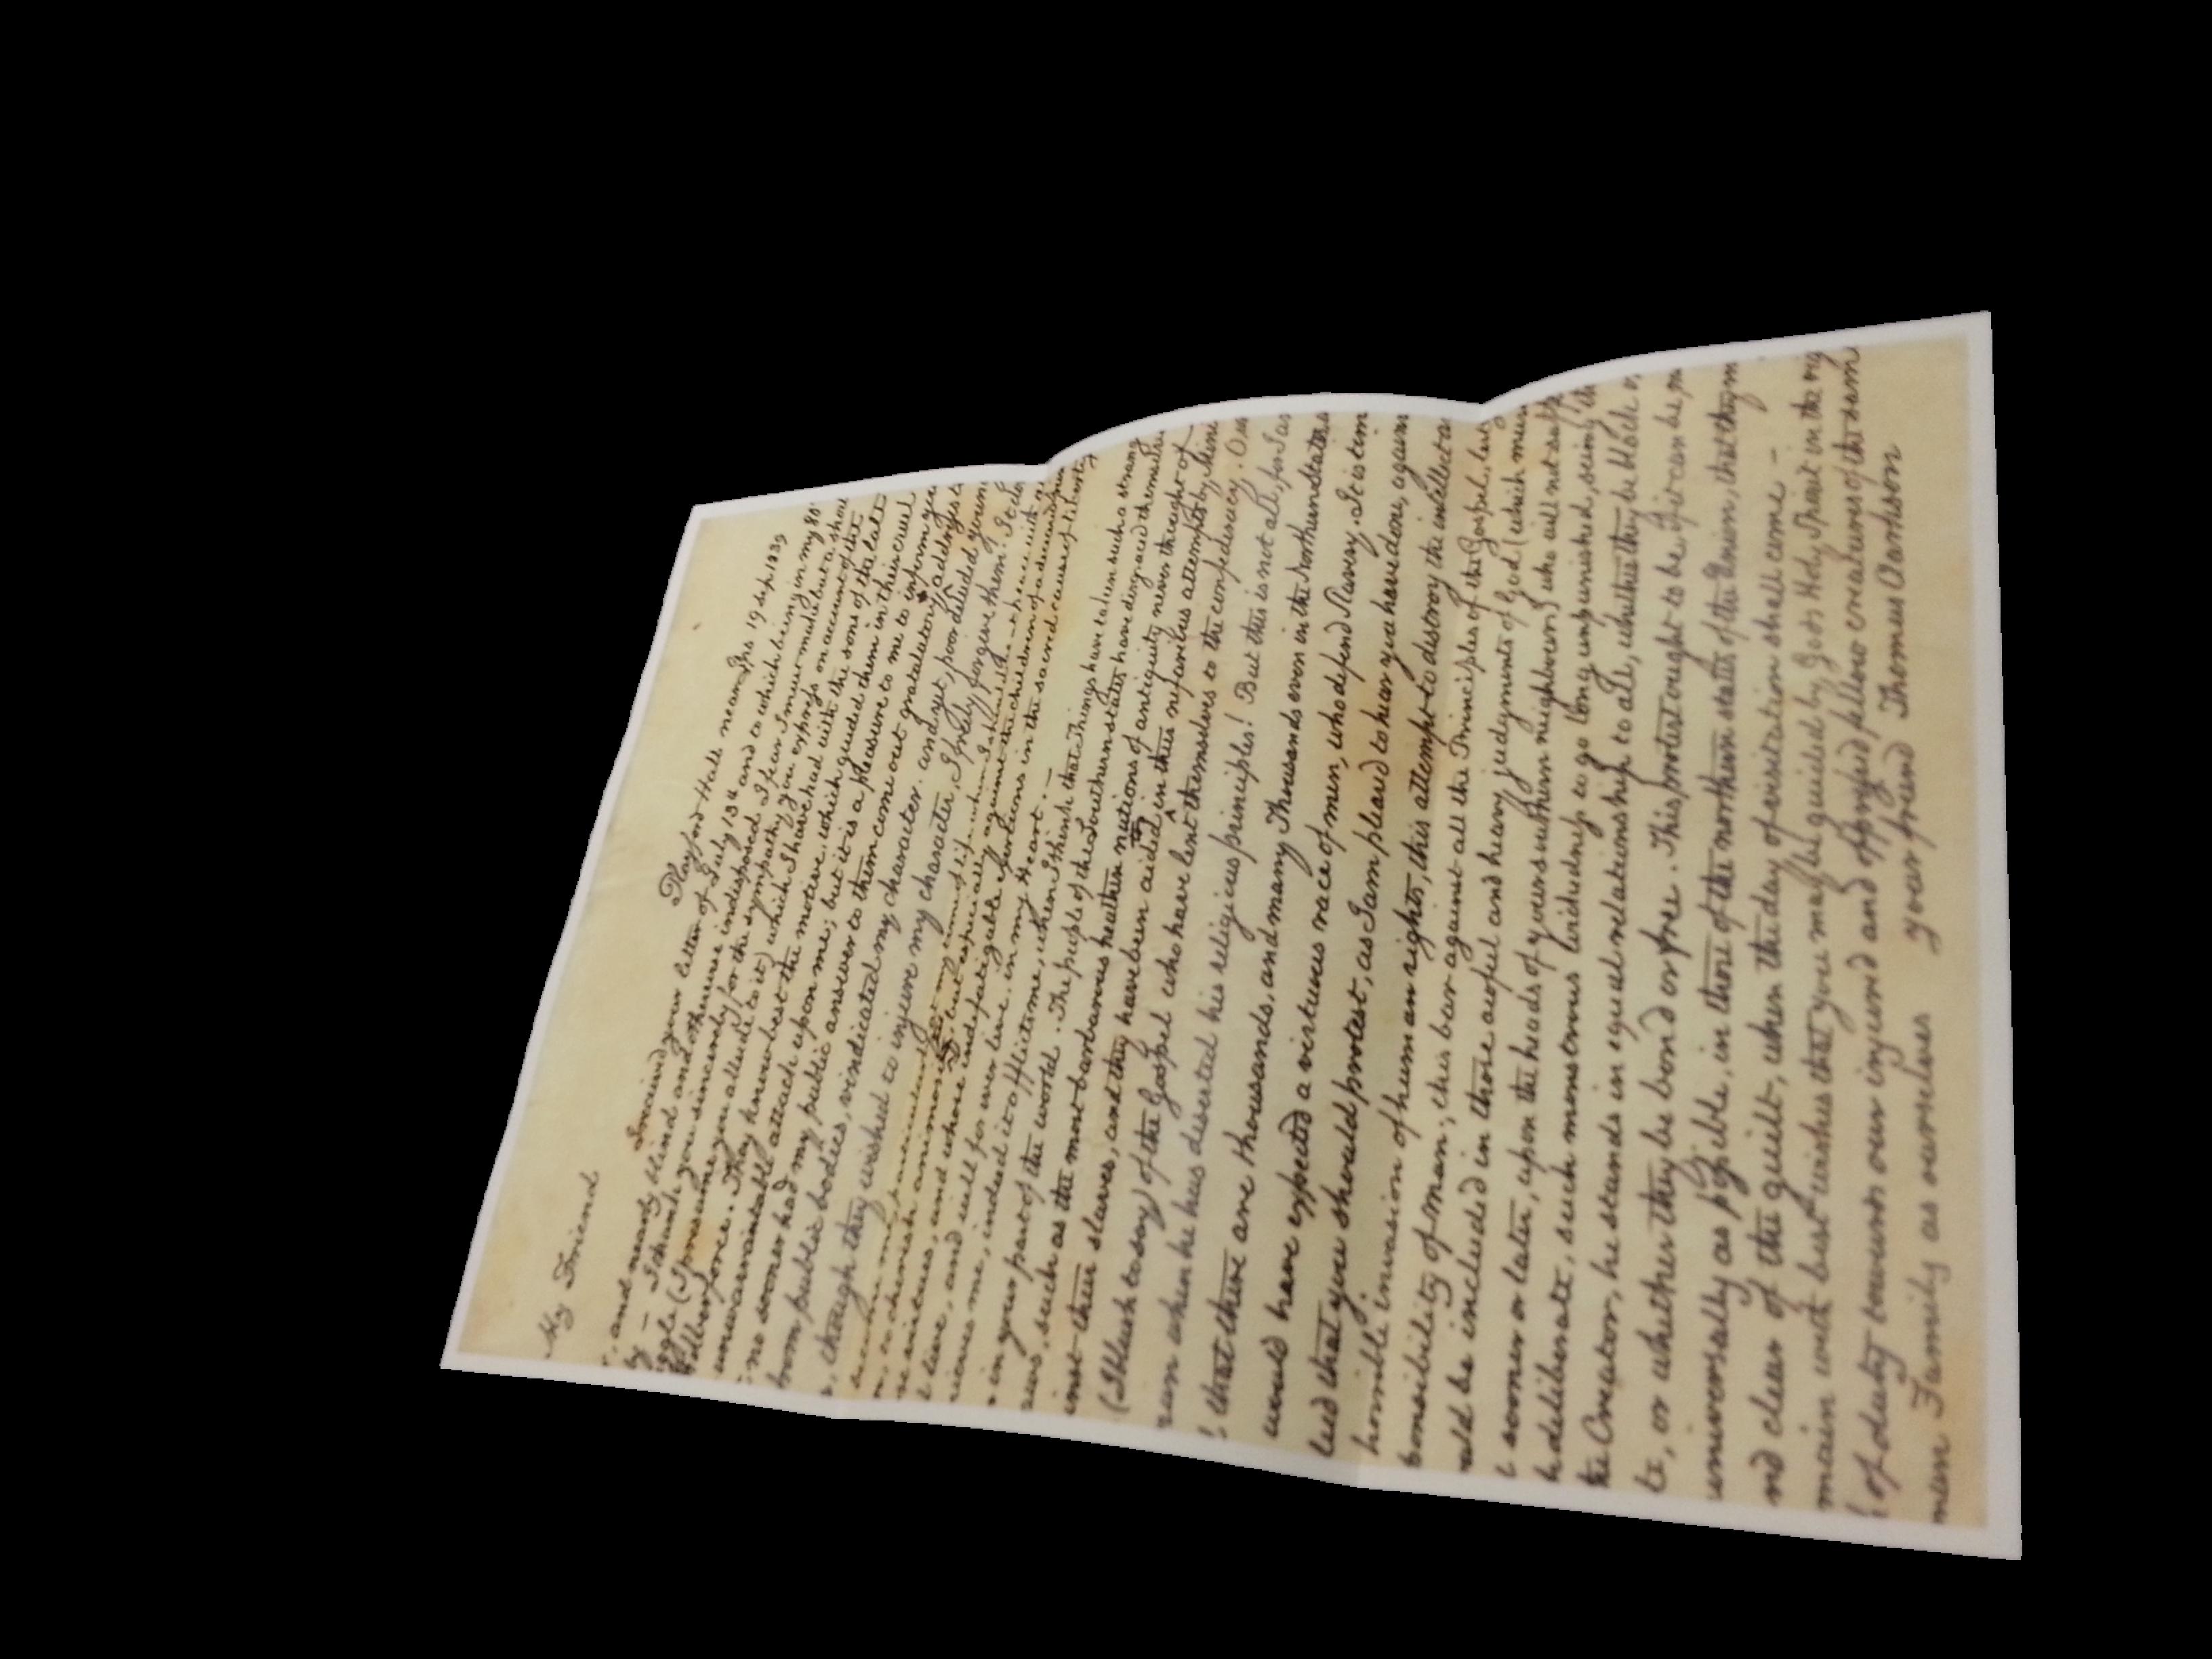 Playford Hall near Ips 19 Sep. 1839
My Friend
I received your letter of July 13th and to which being in my 80
, and nearly blind and otherwise indisposed I fear I must make but a shor
ly — I thank you sincerely for the sympathy you express on account of the
ggle (I presume you allude to it) which I have had with the sons of the late
Wilberforce. They know best the motive, which guided them in their cruel
unwarrantable attach upon me; but it is a pleasure to me to inform you
no sooner had my public answer to them come out gratulatory addresses
from public bodies, vindicated my character. and yet, poor deluded young
, though they wished to injure my character, I freely forgive them. It do
to cherish animosity but especially against the children of a dear
se virtues, and whose indefatigable exertions in the sacred cause of liberty
l live, and will for ever live, in my Heart. —
rieves me, indeed it afflicts me, when I think that Things have taken such a strang
in your part of the world. The people of the Southern states have disgraced themselv
aves, such as the most barbarous heathen nations of antiquity never thought of
inst their slaves, and they have been aided in their nefarious attempts by Mini
(I blush to say) of the Gospel who have lent themselves to the confederacy. Our
man when he has deserted his religious principles! But this is not all, for I as
that there are thousands, and many Thousands even in the Northern States
would have expected a virtuous race of men, who defend Slavery. It is tim
led that you should protest, as I am pleased to hear you have done, again
horrible invasion of human rights, this attempt to destroy the intellect a
ponsibility of man; this bar against all the Principles of the Gospel, lest
uld be included in those awful and heavy judgments of God (which mus
l sooner or later, upon the heads of your southern neighbours) who will not suffe
h deliberate, such monstrous wickedness to go long unpunished, seeing th
the Creator, he stands in equal relationship to all, whether they be black o
te, or whether they be bond or free. This protest ought to be if it can be m
universally as possible, in those of the northern states of the Union, that they m
nd clear of the guilt, when the day of visitation shall come —
main with best wishes that you may be guided by Gods Holy Spirit in the rig
of duty towards our injured and oppressed fellow creatures of the sam
man Family as ourselves your friend Thomas Clarkson